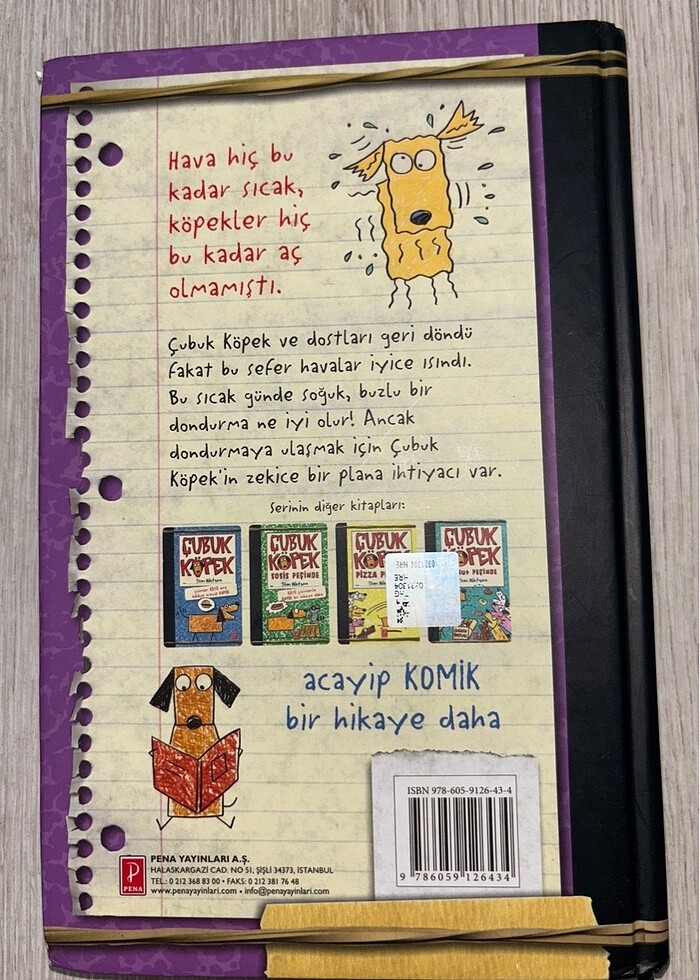 Hava hiç bu
kadar sıcak,
köpekler hiç
bu kadar aç
olmamıştı.
Çubuk Köpek ve dostları geri döndü
fakat bu sefer havalar iyice ısındı.
Bu sıcak günde soğuk, buzlu bir
dondurma ne iyi olur! Ancak
dondurmaya ulaşmak için Çubuk
Köpek'in zekice bir plana ihtiyacı var.
Serinin diğer kitapları:
ÇUBUK
KÖPEK
Tom Watson
ÇUBUK
KÖPEK
SOSİS PEŞİNDE
Tom Watson
ÇUBUK
PİZZA
Tom Watson
ÇUBUK
KÖPEK
PEŞİNDE
acayip KOMİK
bir hikaye daha
ISBN 978-605-9126-43-4
9 786059 126434
PENA
PENA YAYINLARI A.Ş.
HALASKARGAZİ CAD. NO 51, ŞİŞLİ 34373, İSTANBUL
TEL.: 0 212 368 83 00 • FAKS: 0 212 381 76 48
www.penayayinlari.com • info@penayayinlari.com